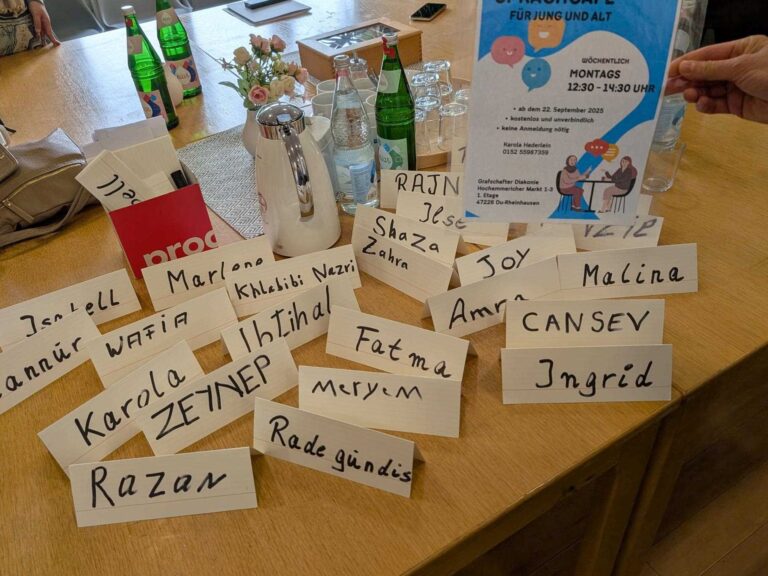 SPRACHCAFÉ
FÜR JUNG UND ALT
WÖCHENTLICH
MONTAGS
12:30 - 14:30 UHR
• ab dem 22. September 2025
• kostenlos und unverbindlich
• keine Anmeldung nötig
Karola Hederlein
0152 55987359
Grafschafter Diakonie
Hochemmericher Markt 1-3
1. Etage
47226 Du-Rheinhausen
RAJN
Ilse
Shaza
Zahra
JOY
Malina
Marlene
Khlabibi Nazri
Amra
Isabell
WAFIA
Ibtihal
Fatma
CANSEV
Ingrid
Karola
ZEYNEP
Meryem
Radegündis
RAZAN